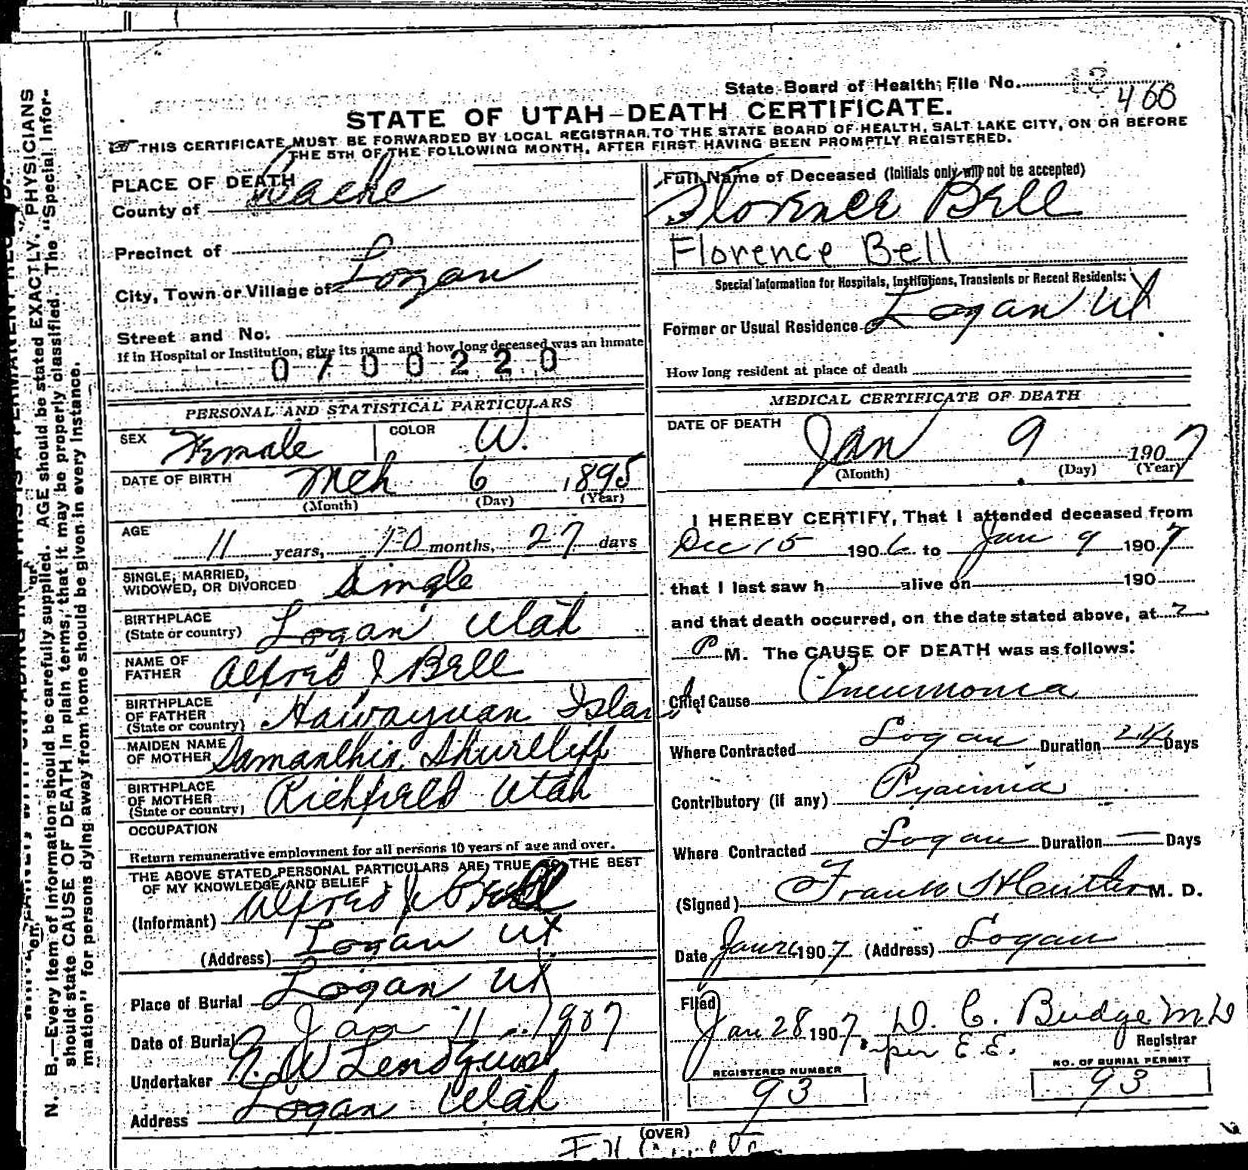 State Board of Health File No. 466
STATE OF UTAH-DEATH CERTIFICATE.
THIS CERTIFICATE MUST BE FORWARDED BY LOCAL REGISTRAR TO THE STATE BOARD OF HEALTH, SALT LAKE CITY, ON OR BEFORE
THE 5TH OF THE FOLLOWING MONTH, AFTER FIRST HAVING BEEN PROMPTLY REGISTERED.
PLACE OF DEATH
County of Cache
Precinct of
City, Town or Village of Logan
Street and No.
If in Hospital or Institution, give its name and how long deceased was an inmate
0700220
PERSONAL AND STATISTICAL PARTICULARS
SEX Female COLOR W.
DATE OF BIRTH Mch 6 1895
(Month) (Day) (Year)
AGE 11 years, 10 months, 27 days
SINGLE, MARRIED,
WIDOWED, OR DIVORCED Single
BIRTHPLACE
(State or country) Logan Utah
NAME OF
FATHER Alfred J Bell
BIRTHPLACE
OF FATHER
(State or country) Hawayuan Islands
MAIDEN NAME
OF MOTHER Samanthia Shurtliff
BIRTHPLACE
OF MOTHER
(State or country) Richfield Utah
OCCUPATION
Return remunerative employment for all persons 10 years of age and over.
THE ABOVE STATED PERSONAL PARTICULARS ARE TRUE TO THE BEST
OF MY KNOWLEDGE AND BELIEF
(Informant) Alfred J. Bell
(Address) Logan Ut
Place of Burial Logan Ut
Date of Burial Jan 11 1907
Undertaker N. W Lendquist
Address Logan Utah
Full Name of Deceased (Initials only will not be accepted)
Florence Bell
Florence Bell
Special Information for Hospitals, Institutions, Transients or Recent Residents:
Former or Usual Residence Logan Ut
How long resident at place of death
MEDICAL CERTIFICATE OF DEATH
DATE OF DEATH Jan 9 1907
(Month) (Day) (Year)
I HEREBY CERTIFY, That I attended deceased from
Dec 15 1906 to Jan 9 1907
that I last saw h alive on 190
and that death occurred, on the date stated above, at 2
P M. The CAUSE OF DEATH was as follows:
Chief Cause Pneumonia
Where Contracted Logan Duration 24 Days
Contributory (if any) Pyaemia
Where Contracted Logan Duration — Days
(Signed) Frank M. D.
Date Jan 26 1907 (Address) Logan
Filed
Jan 28 1907. D. C. Budge M D
per E.E. Registrar
REGISTERED NUMBER
93
NO. OF BURIAL PERMIT
93
(OVER)
N. B.—Every item of information should be carefully supplied. AGE should be stated EXACTLY. PHYSICIANS
should state CAUSE OF DEATH in plain terms, that it may be properly classified. The "Special Infor-
mation" for persons dying away from home should be given in every instance.